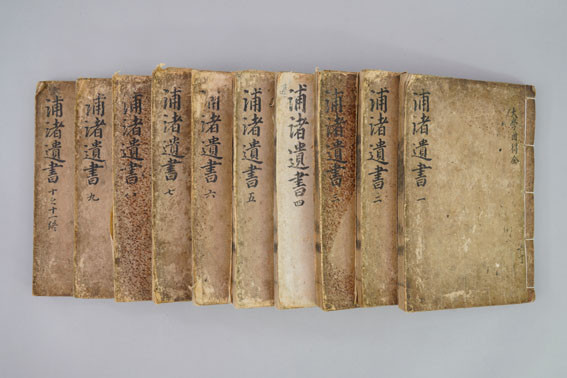 浦渚遺書 一
浦渚遺書 二
浦渚遺書
浦渚遺書 四
浦渚遺書 五
浦渚遺書 六
浦渚遺書 七
浦渚遺書
浦渚遺書 九
浦渚遺書 十之十一